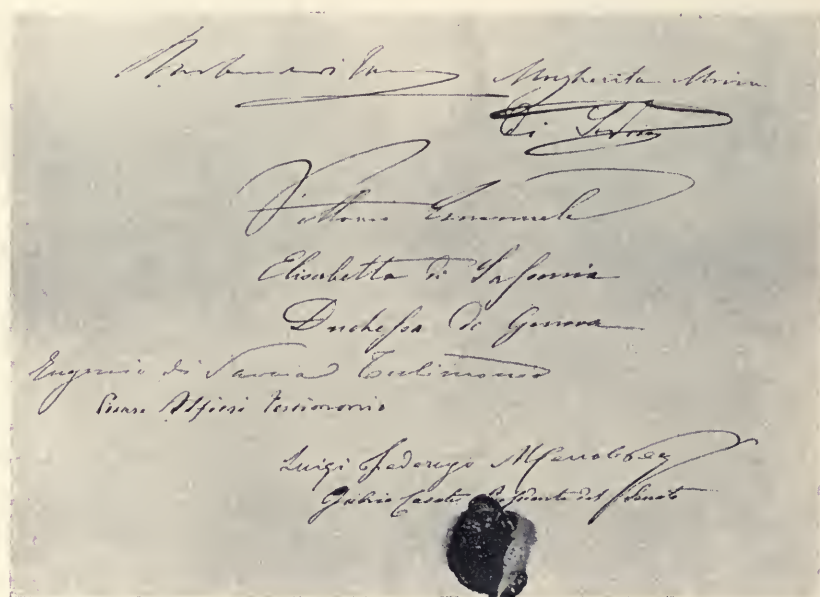 Margherita Maria
di Savoia
Vittorio Emanuele
Elisabetta di Sassonia
Duchessa di Genova
Eugenio di Savoia Testimonio
Cesare Alfieri testimonio
Luigi Federigo Menabrea
Gabrio Casati Presidente del Senato